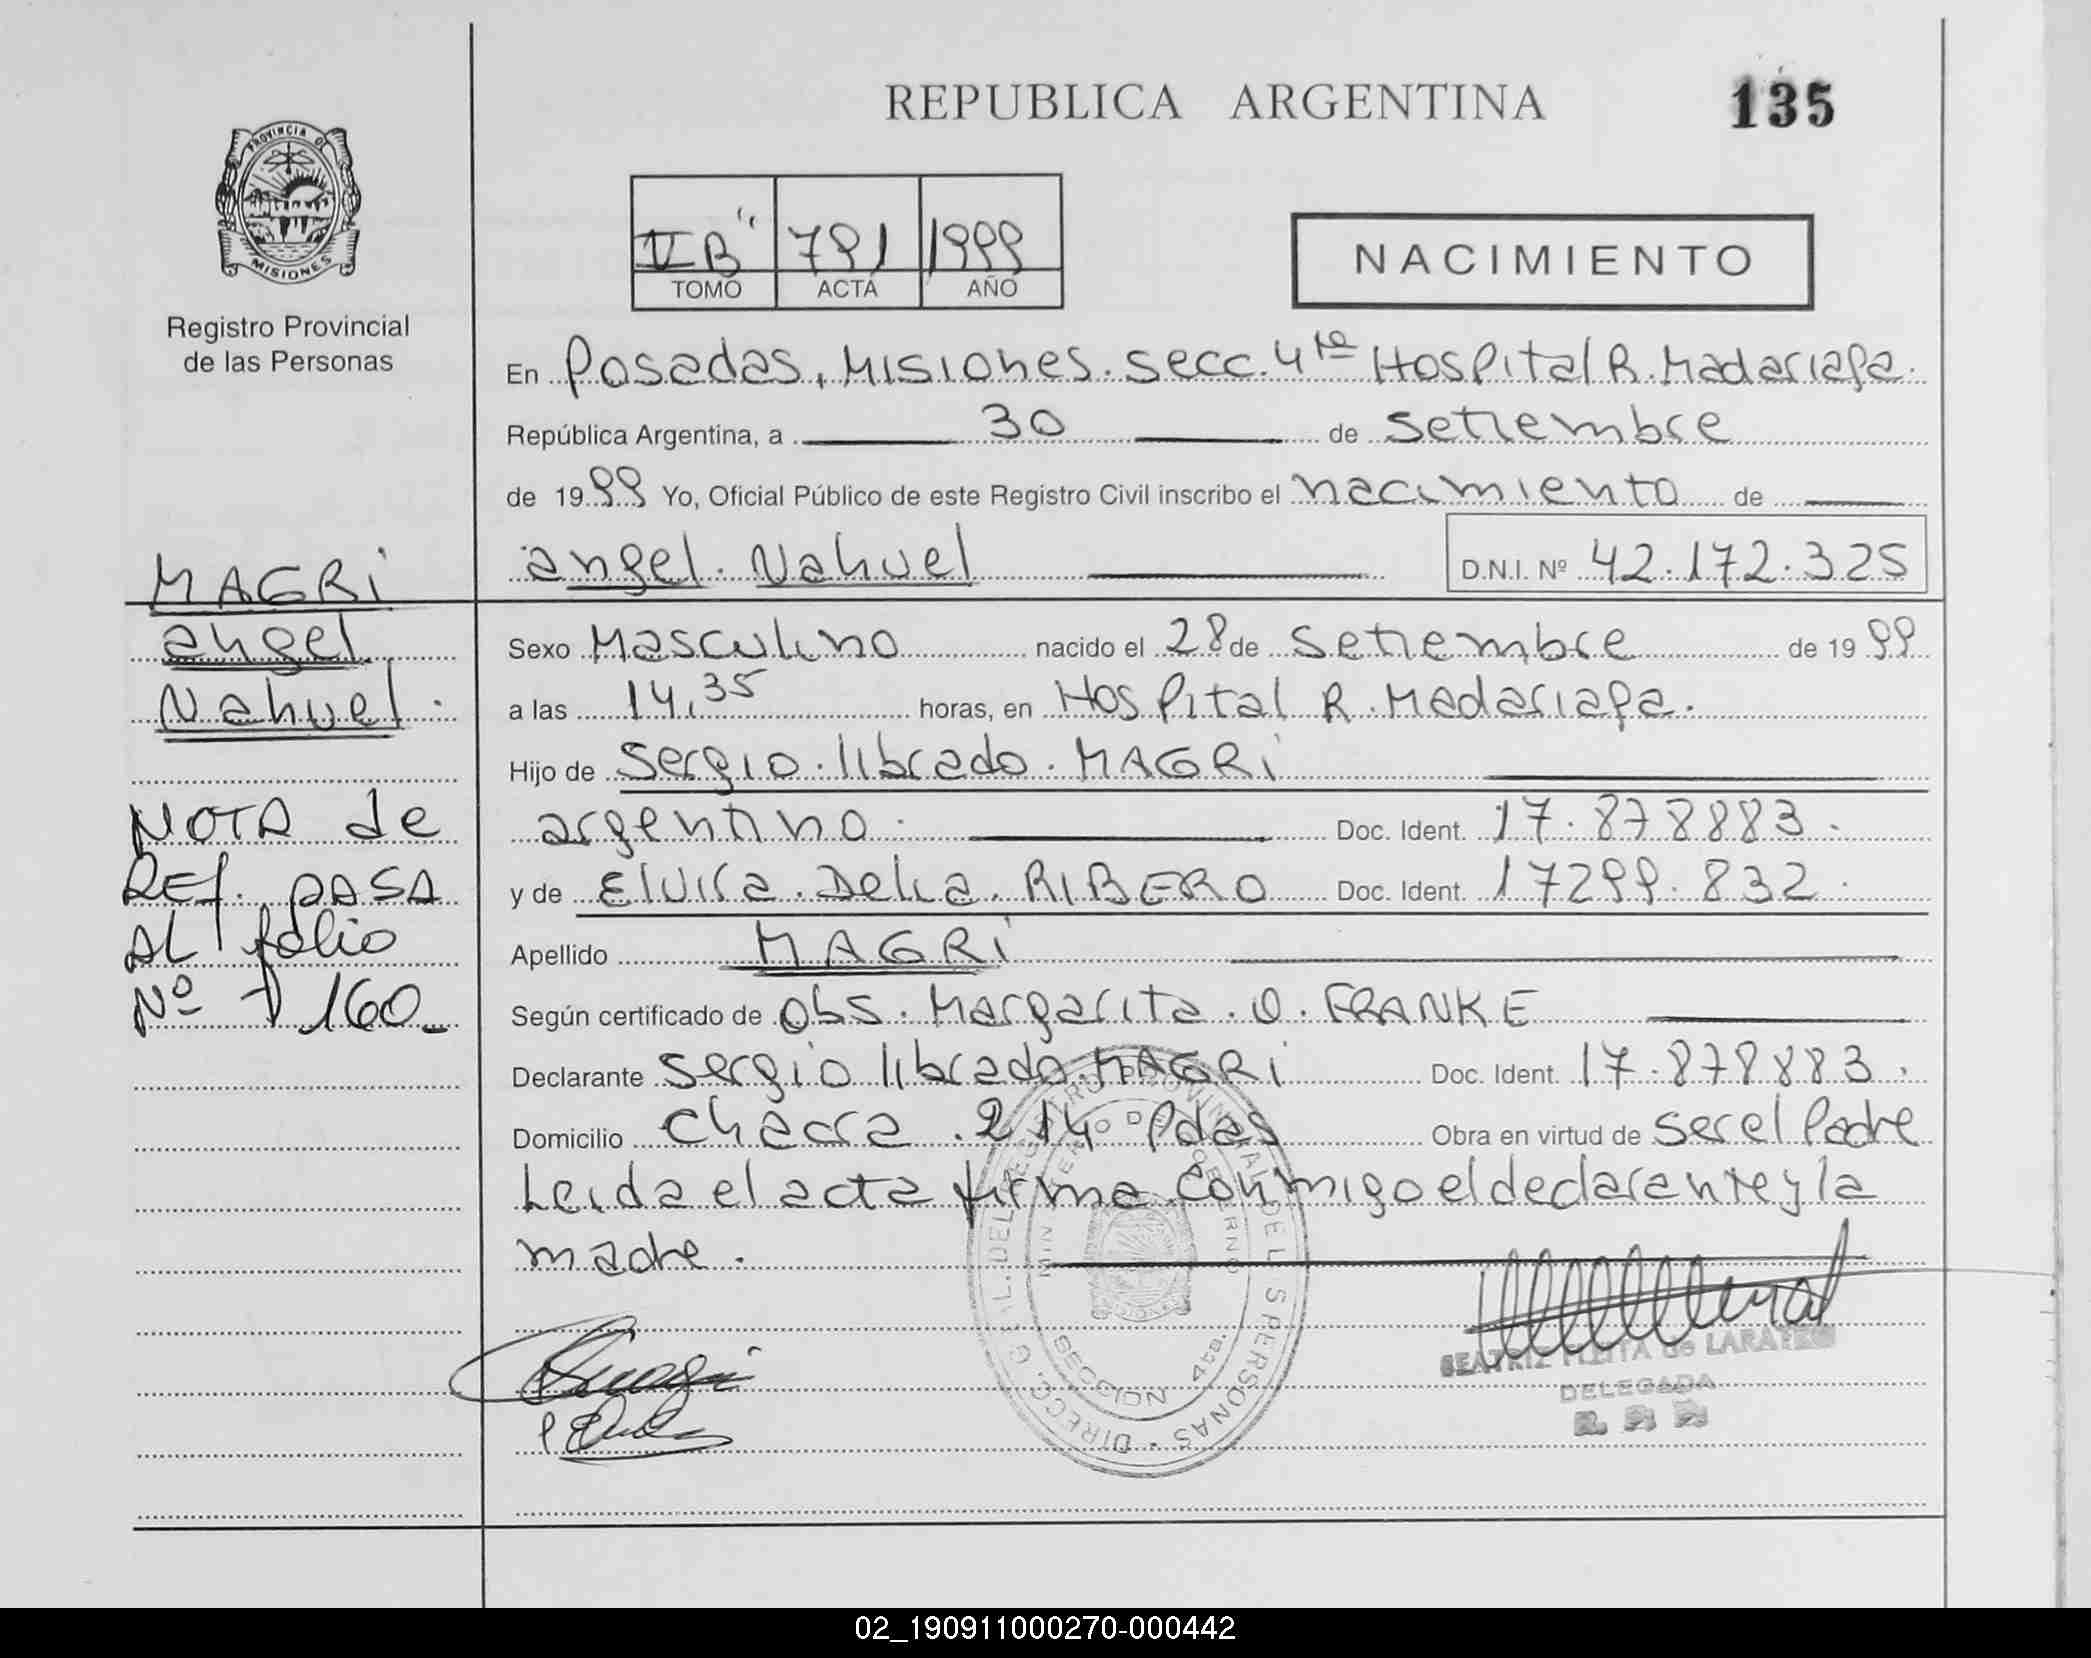 REPUBLICA ARGENTINA
135
PROVINCIA DE
MISIONES
Registro Provincial
de las Personas
II B" 791 1999
TOMO ACTA AÑO
NACIMIENTO
En Posadas, Misiones. secc. 4ta Hospital R. Madariaga.
República Argentina, a 30 de Setiembre
de 1999 Yo, Oficial Público de este Registro Civil inscribo el nacimiento de
angel. Nahuel
D.N.I. Nº 42.172.325
MAGRi
angel
Nahuel.
NOTA de
REf. PASA
AL folio
Nº 160
Sexo Masculino nacido el 28 de Setiembre de 1999
a las 14,35 horas, en Hospital R. Madariaga.
Hijo de Sergio. librado. MAGRi
argentino. Doc. Ident. 17.878883.
y de Elvira. Delia. RIBERO Doc. Ident. 17299.832.
Apellido MAGRi
Según certificado de Obs. Margarita. O. FRANKE
Declarante Sergio librado. MAGRi Doc. Ident. 17.878883.
Domicilio Chacra. 214 Pdas Obra en virtud de Ser el Padre
Leida el acta firma conmigo el declarante y la
madre.
DIRECC. GRAL. DEL REGISTRO PROVINCIAL DE LAS PERSONAS
MINISTERIO DE GOBIERNO
SECCION 4ta.
BEATRIZ de
DELEGADA
02_190911000270-000442